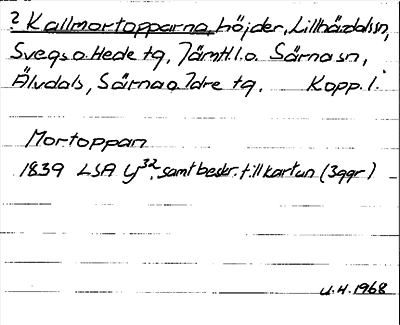 ? Kallmortopparna, höjder, Lillhärdalssn,
Svegs o. Hede tg, Jämtl.l. o. Särna sn,
Älvdals, Särna o. Idre tg. Kopp. l.
Mortoppan
1839 LSA Y³². samt beskr. till kartan (3ggr)
U.H. 1968